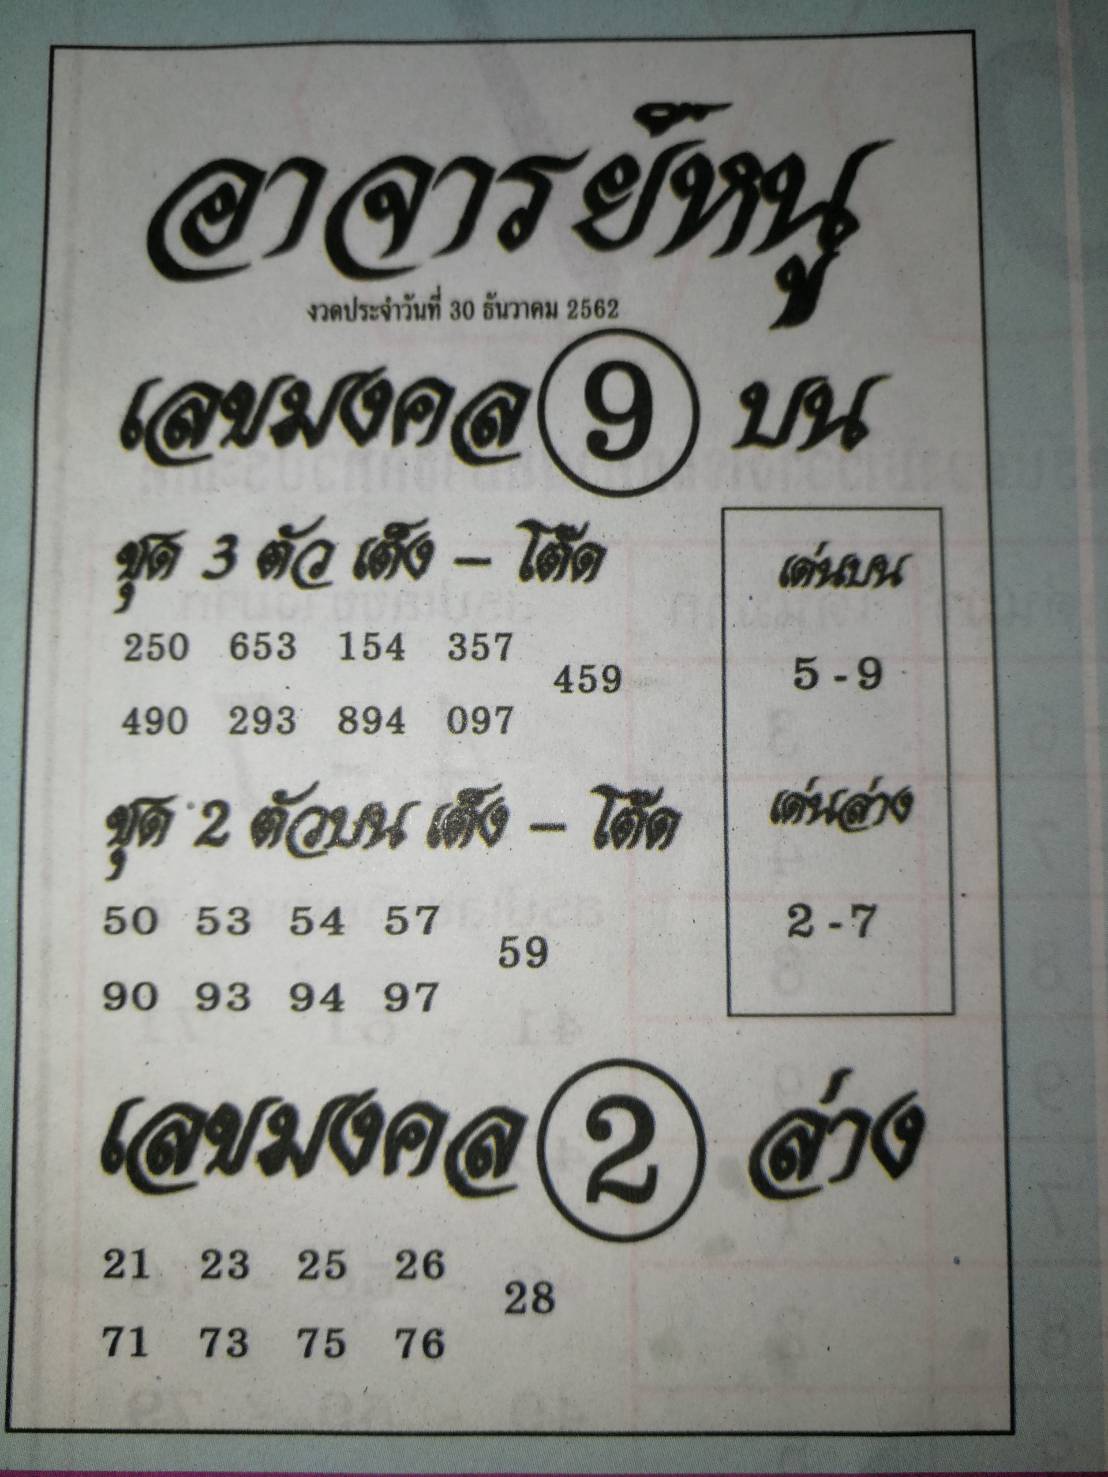 อาจารย์หนู
งวดประจำวันที่ 30 ธันวาคม 2562
เลขมงคล 9 บน
ชุด 3 ตัว เต็ง – โต๊ด
250 653 154 357
459
490 293 894 097
ชุด 2 ตัวบน เต็ง – โต๊ด
50 53 54 57
59
90 93 94 97
เด่นบน
5 - 9
เด่นล่าง
2 - 7
เลขมงคล 2 ล่าง
21 23 25 26
28
71 73 75 76